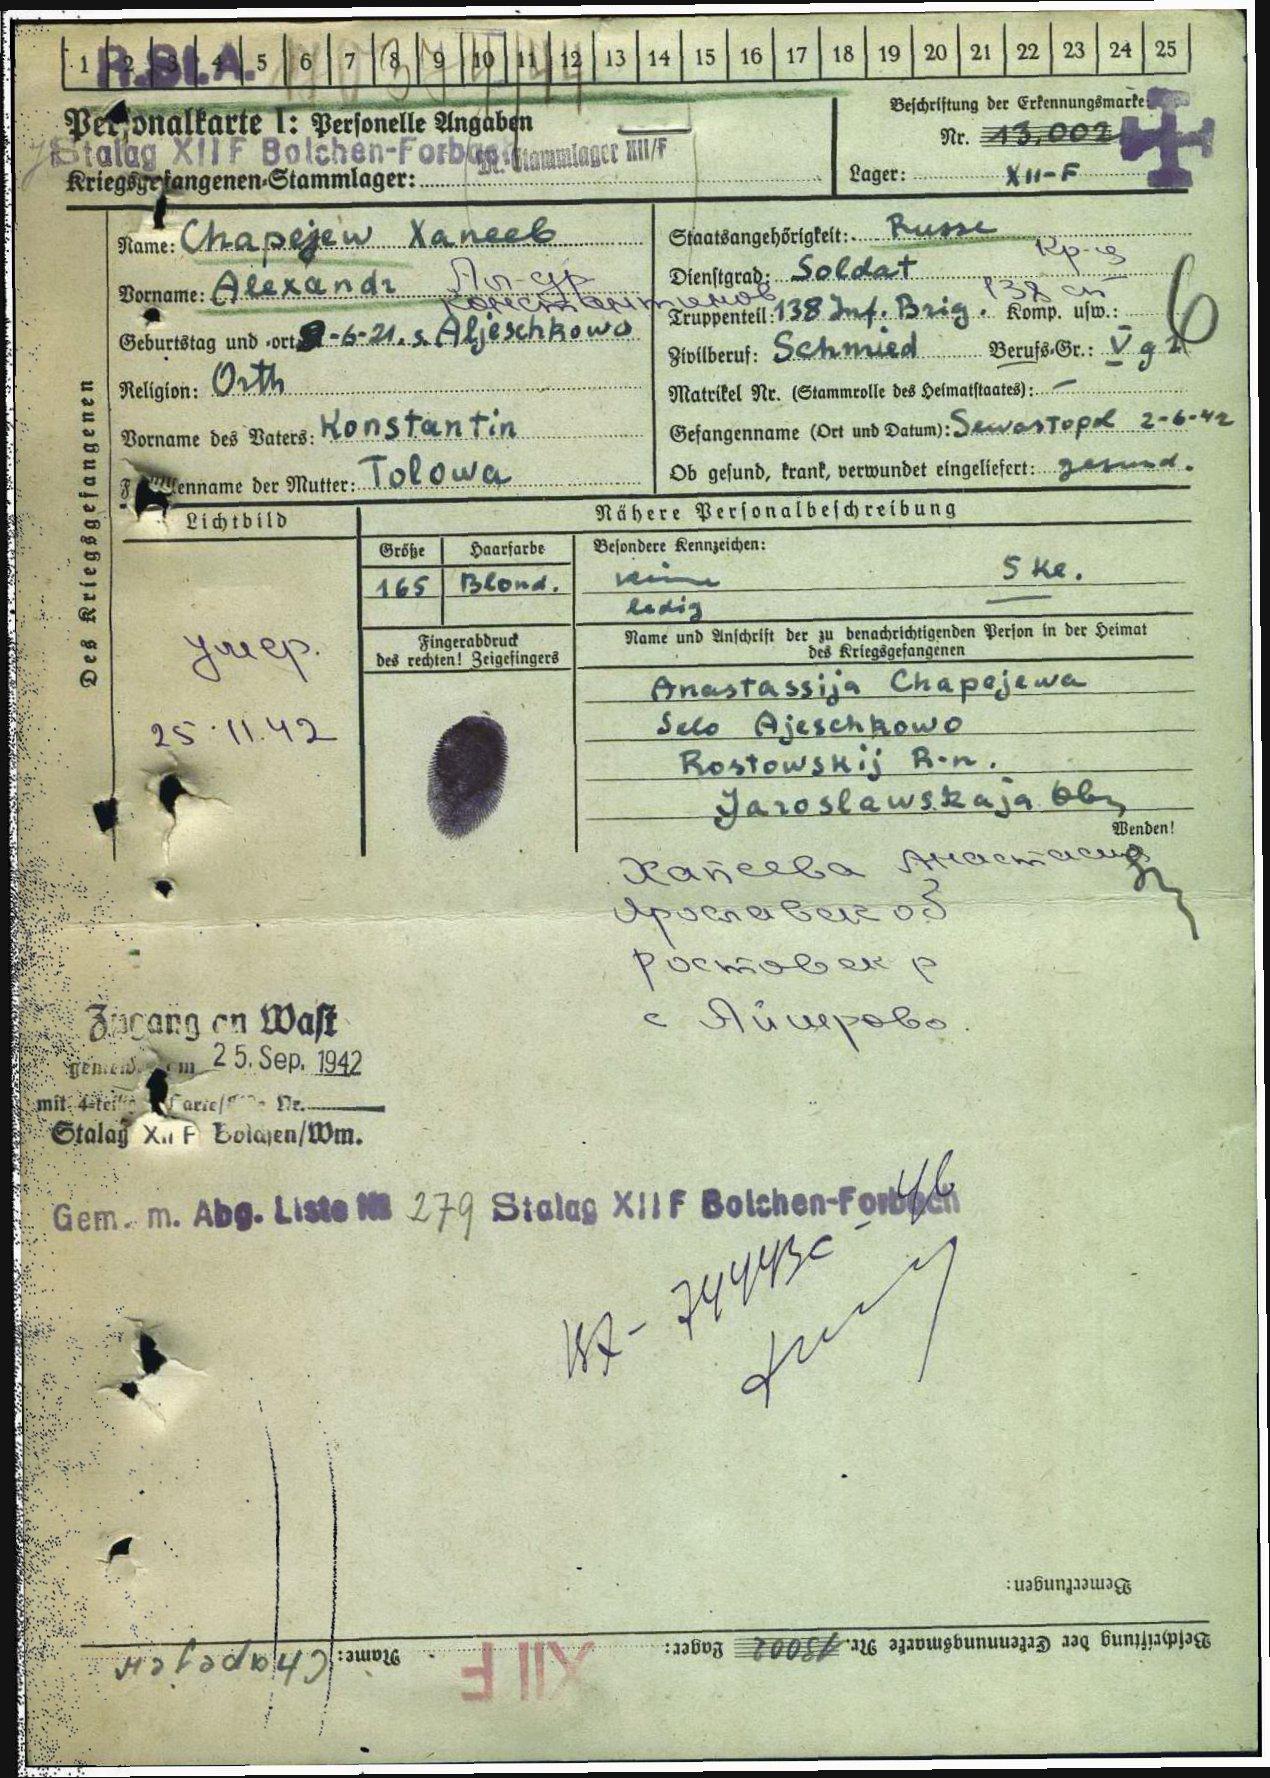 1 2 3 4 5 6 7 8 9 10 11 12 13 14 15 16 17 18 19 20 21 22 23 24 25
R.St.A.
Personalkarte I: Personelle Angaben
Beschriftung der Erkennungsmarke:
Nr. 13.002
Stalag XII F Bolchen-Forbach
M. Stammlager XII/F
Kriegsgefangenen-Stammlager:
Lager: XII-F
Des Kriegsgefangenen
Name: Chapejew Хапеев
Vorname: Alexandr Ал-др
Константинов
Geburtstag und -ort: -6-21. s. Aljeschkowo
Religion: Orth
Vorname des Vaters: Konstantin
Familienname der Mutter: Tolowa
Staatsangehörigkeit: Russe
Кр-ц
Dienstgrad: Soldat
138 сп
Truppenteil: 138 Inf. Brig. Komp. usw.:
6
Zivilberuf: Schmied Berufs-Gr.: V g
Matrikel Nr. (Stammrolle des Heimatstaates): —
Gefangennahme (Ort und Datum): Sewastopol 2-6-42
Ob gesund, krank, verwundet eingeliefert: gesund.
Lichtbild
Nähere Personalbeschreibung
Größe Haarfarbe Besondere Kennzeichen:
165 Blond. keine 5 Kl.
ledig
Fingerabdruck
des rechten! Zeigefingers
Name und Anschrift der zu benachrichtigenden Person in der Heimat
des Kriegsgefangenen
умер.
25.11.42
Anastassija Chapejewa
Selo Ajeschkowo
Rostowskij R-n.
Jaroslawskaja Obl
Wenden!
Хапеева Анастасия
Ярославск об
Ростовск р
с
Zugang an Wast
gemeldet am 25. Sep. 1942
mit 4-teil. Karte/Liste Nr.
Stalag XII F Bolchen/Wm.
Gem. m. Abg. Liste № 279 Stalag XII F Bolchen-Forbach
Bemerkungen:
Beschriftung der Erkennungsmarke Nr. 13002 Lager: XII F Name: Chapejew